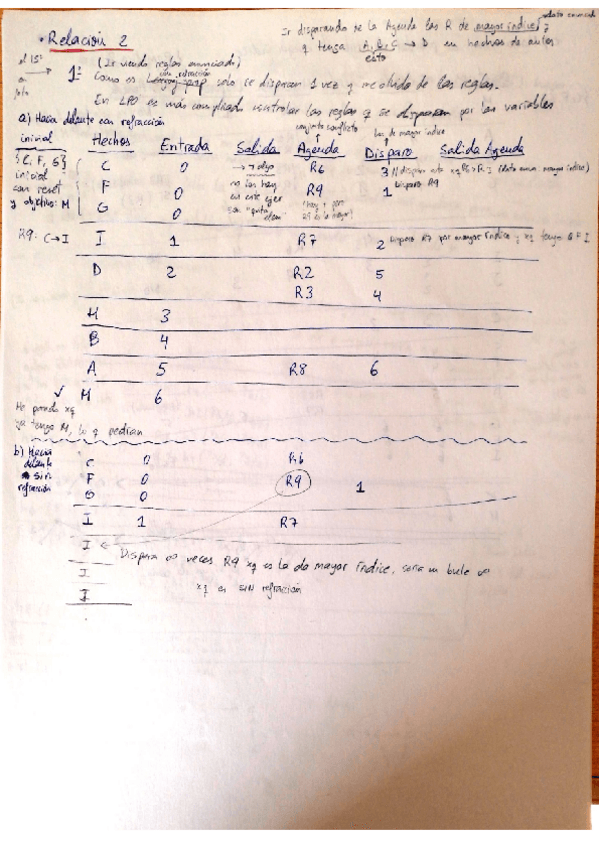 • Relación 2
Ir disparando de la Agenda las R de mayor índice y
q tenga A, B, C → D en hechos de antes
esto
1º (Ir viendo reglas enunciado)
con refracción
Como es solo se disparan 1 vez y me olvido de las reglas.
En LPO es más complicado controlar las reglas q se disparan por las variables
a) Hacia delante con refracción
conjunto conflicto
la de mayor índice
inicial Hechos Entrada Salida Agenda Disparo Salida Agenda
{C, F, G} C 0 → si algo R6 3
inicial F 0 no las hay R9 1 Disparo R9
con reset en este ejer
y objetivo: M G 0
R9. C→I I 1 R7 2 Disparo R7 por mayor índice y xq tengo G F I
D 2 R2 5
R3 4
H 3
B 4
A 5 R8 6
✓ M 6
He parado xq
ya tengo M, lo q pedían
b) Hacia C 0 R6
delante F 0 R9 1
sin
refracción G 0
I 1 R7
I ← Dispara ∞ veces R9 xq es la de mayor índice, sería un bucle ∞
I xq es SIN refracción
I